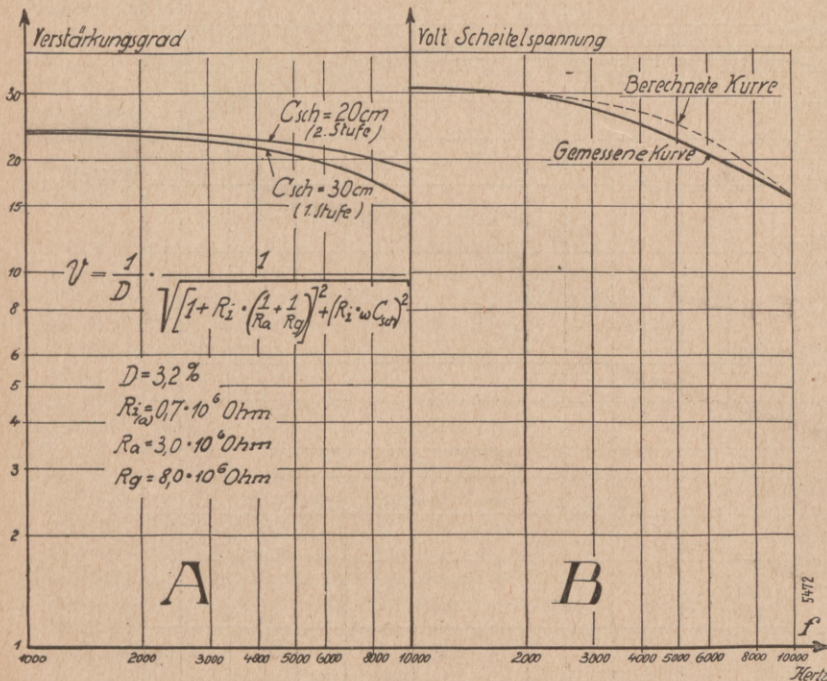 Verstärkungsgrad
Volt Scheitelspannung
30
20
15
10
8
6
5
4
3
2
1
Csch = 20cm
(2. Stufe)
Csch = 30cm
(1. Stufe)
Berechnete Kurve
Gemessene Kurve
V = 1/D · 1/√([1 + Ri · (1/Ra + 1/Rg)]² + (Ri · ωCsch)²)
D = 3,2 %
Ri(a) = 0,7 · 10⁶ Ohm
Ra = 3,0 · 10⁶ Ohm
Rg = 8,0 · 10⁶ Ohm
A
B
5472
f
1000 2000 3000 4000 5000 6000 8000 10000 2000 3000 4000 5000 6000 8000 10000
Hertz